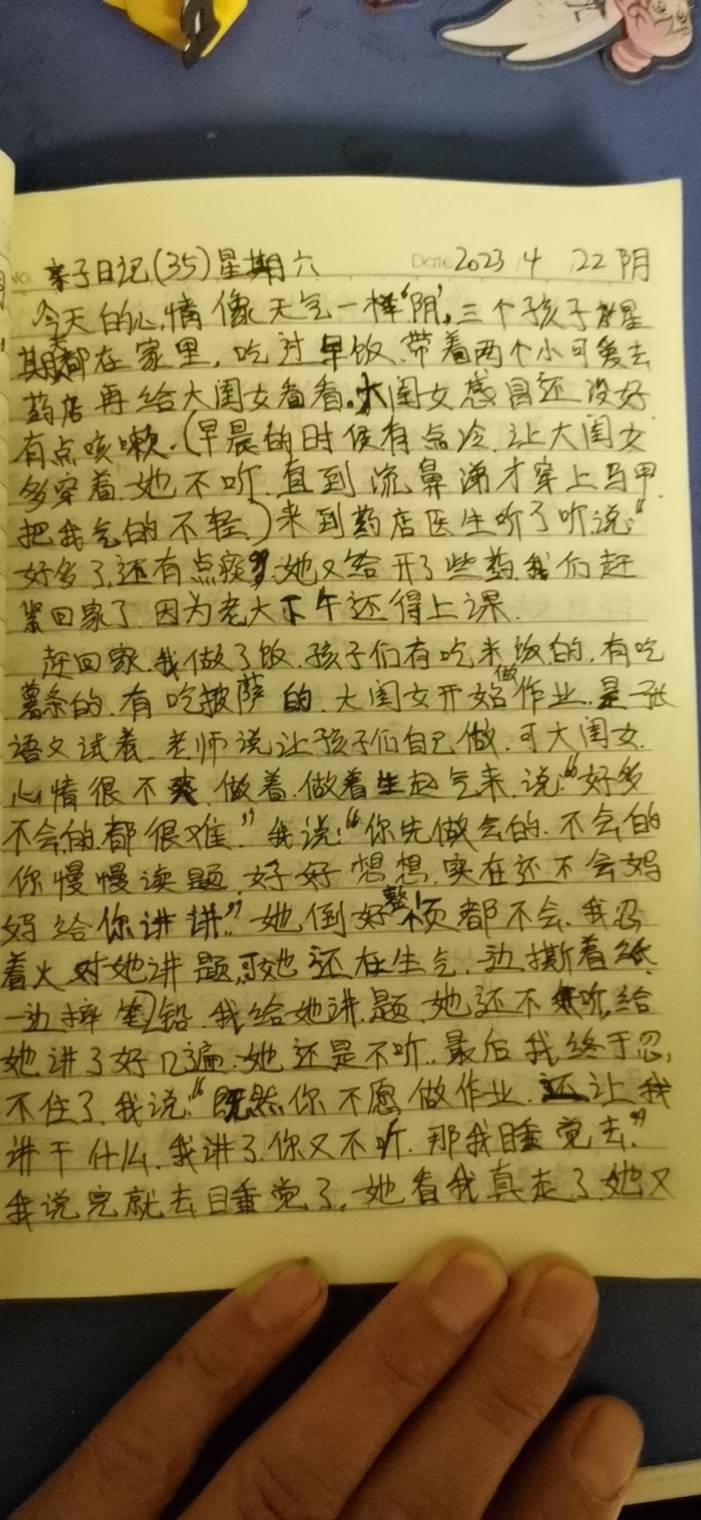 亲子日记(35)星期六 Date 2023 4 22 阴
今天的心情像天气一样“阴”,三个孩子星
期都在家里,吃过早饭.带着两个小可爱去
药店再给大闺女看看.大闺女感冒还没好
有点咳嗽.(早晨的时候有点冷.让大闺女
多穿着.她不听.直到流鼻涕才穿上马甲.
把我气的不轻.)来到药店医生听了听.说:“
好多了.还有点痰”.她又给开了些药.我们赶
紧回家了.因为老大下午还得上课.
赶回家.我做了饭.孩子们有吃米饭的.有吃
薯条的.有吃披萨的.大闺女开始做作业.是张
语文试卷.老师说让孩子们自己做.可大闺女.
心情很不爽.做着.做着生起气来.说:“好多
不会的.都很难”.我说:“你先做会的.不会的
你慢慢读题.好好想想.实在还不会妈
妈给你讲讲.”她倒好整页都不会.我忍
着火.对她讲题,可她还在生气.边撕着纸.
一边摔铅.我给她讲题.她还不听.给
她讲了好几遍.她还是不听.最后我终于忍
不住了.我说:“既然你不愿做作业.还让我
讲干什么.我讲了.你又不听.那我睡觉去.”
我说完就去睡觉了.她看我真走了.她又